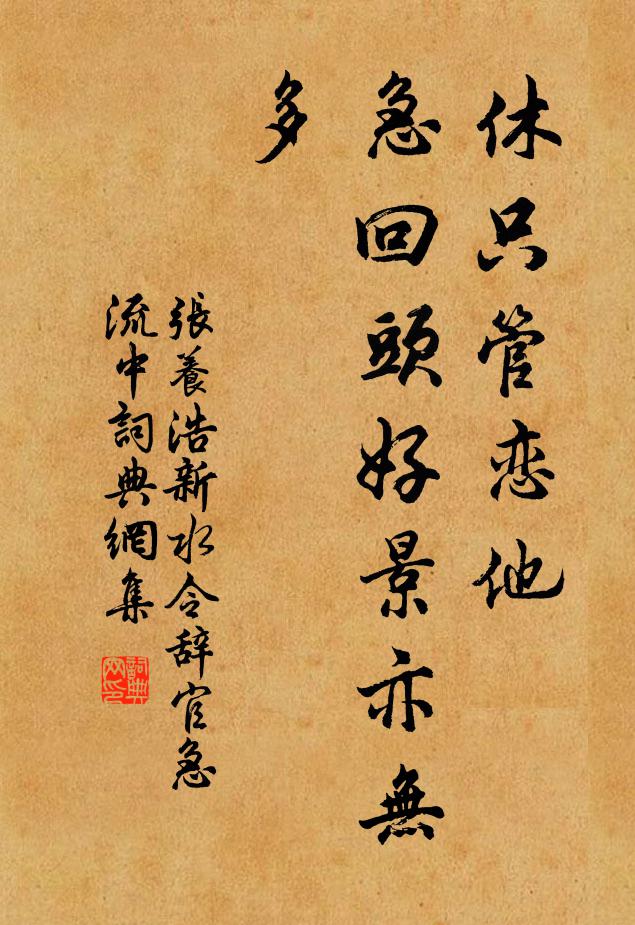 休只管恋他
急回頭好景亦無
多
張養浩新水令辞官急
流中詞典網集
詞典
网印